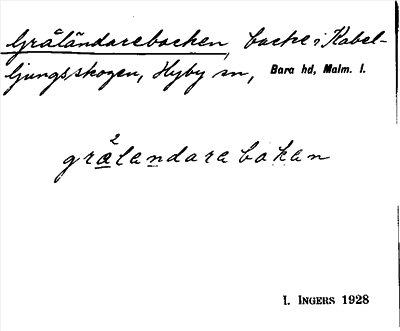 Gråländarebacken, backe i Kabel-
ljungsskogen, Hyby sn, Bara hd, Malm. l.
gra²landara bakan
I. INGERS 1928